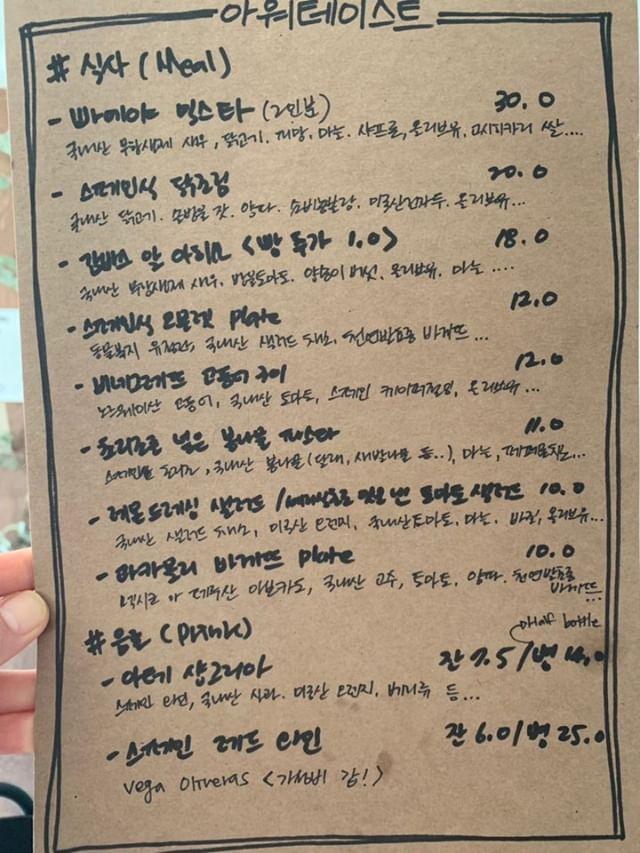 아워테이스트
# 식사 (Meal)
- 빠에야 믹스타 (2인분) 30.0
국내산 무항생제 새우, 닭고기, 피망, 마늘, 샤프론, 올리브유, 고시히카리 쌀....
- 스페인식 닭조림 20.0
국내산 닭고기. 은방울 갓. 양파. 미국산건자두. 올리브유...
- 감바스 알 아히요 <빵 추가 1.0> 18.0
국내산 무항생제 새우. 방울토마토. 양송이 버섯. 올리브유. 마늘 ....
- 스페인식 오믈렛 Plate 12.0
동물복지 유정란, 국내산 샐러드 채소, 천연발효종 바게뜨 ...
- 비네그레뜨 고등어 구이 12.0
노르웨이산 고등어, 국내산 토마토, 스페인 케이퍼절임, 올리브유...
- 초리조를 넣은 봄나물 파스타 11.0
스페인산 초리조, 국내산 봄나물(달래, 세발나물 등..), 마늘, 페퍼론치노...
- 레몬드레싱 샐러드 / 맛을 낸 토마토 샐러드 10.0
국내산 샐러드 채소, 미국산 오렌지, 국내산토마토. 마늘. 바질, 올리브유...
- 과카몰리 바게뜨 Plate 10.0
멕시코 아보카도, 국내산 고수, 토마토, 양파. 천연발효종 바게뜨
...
# 음료 (Drink)
half bottle
- 아떼 샹그리아 잔 7.5 / 병 14.0
스페인 와인, 국내산 사과. 미국산 오렌지, 베리류 등...
- 스페인 레드 와인 잔 6.0 / 병 25.0
Vega Oliveras <가성비 갑!>